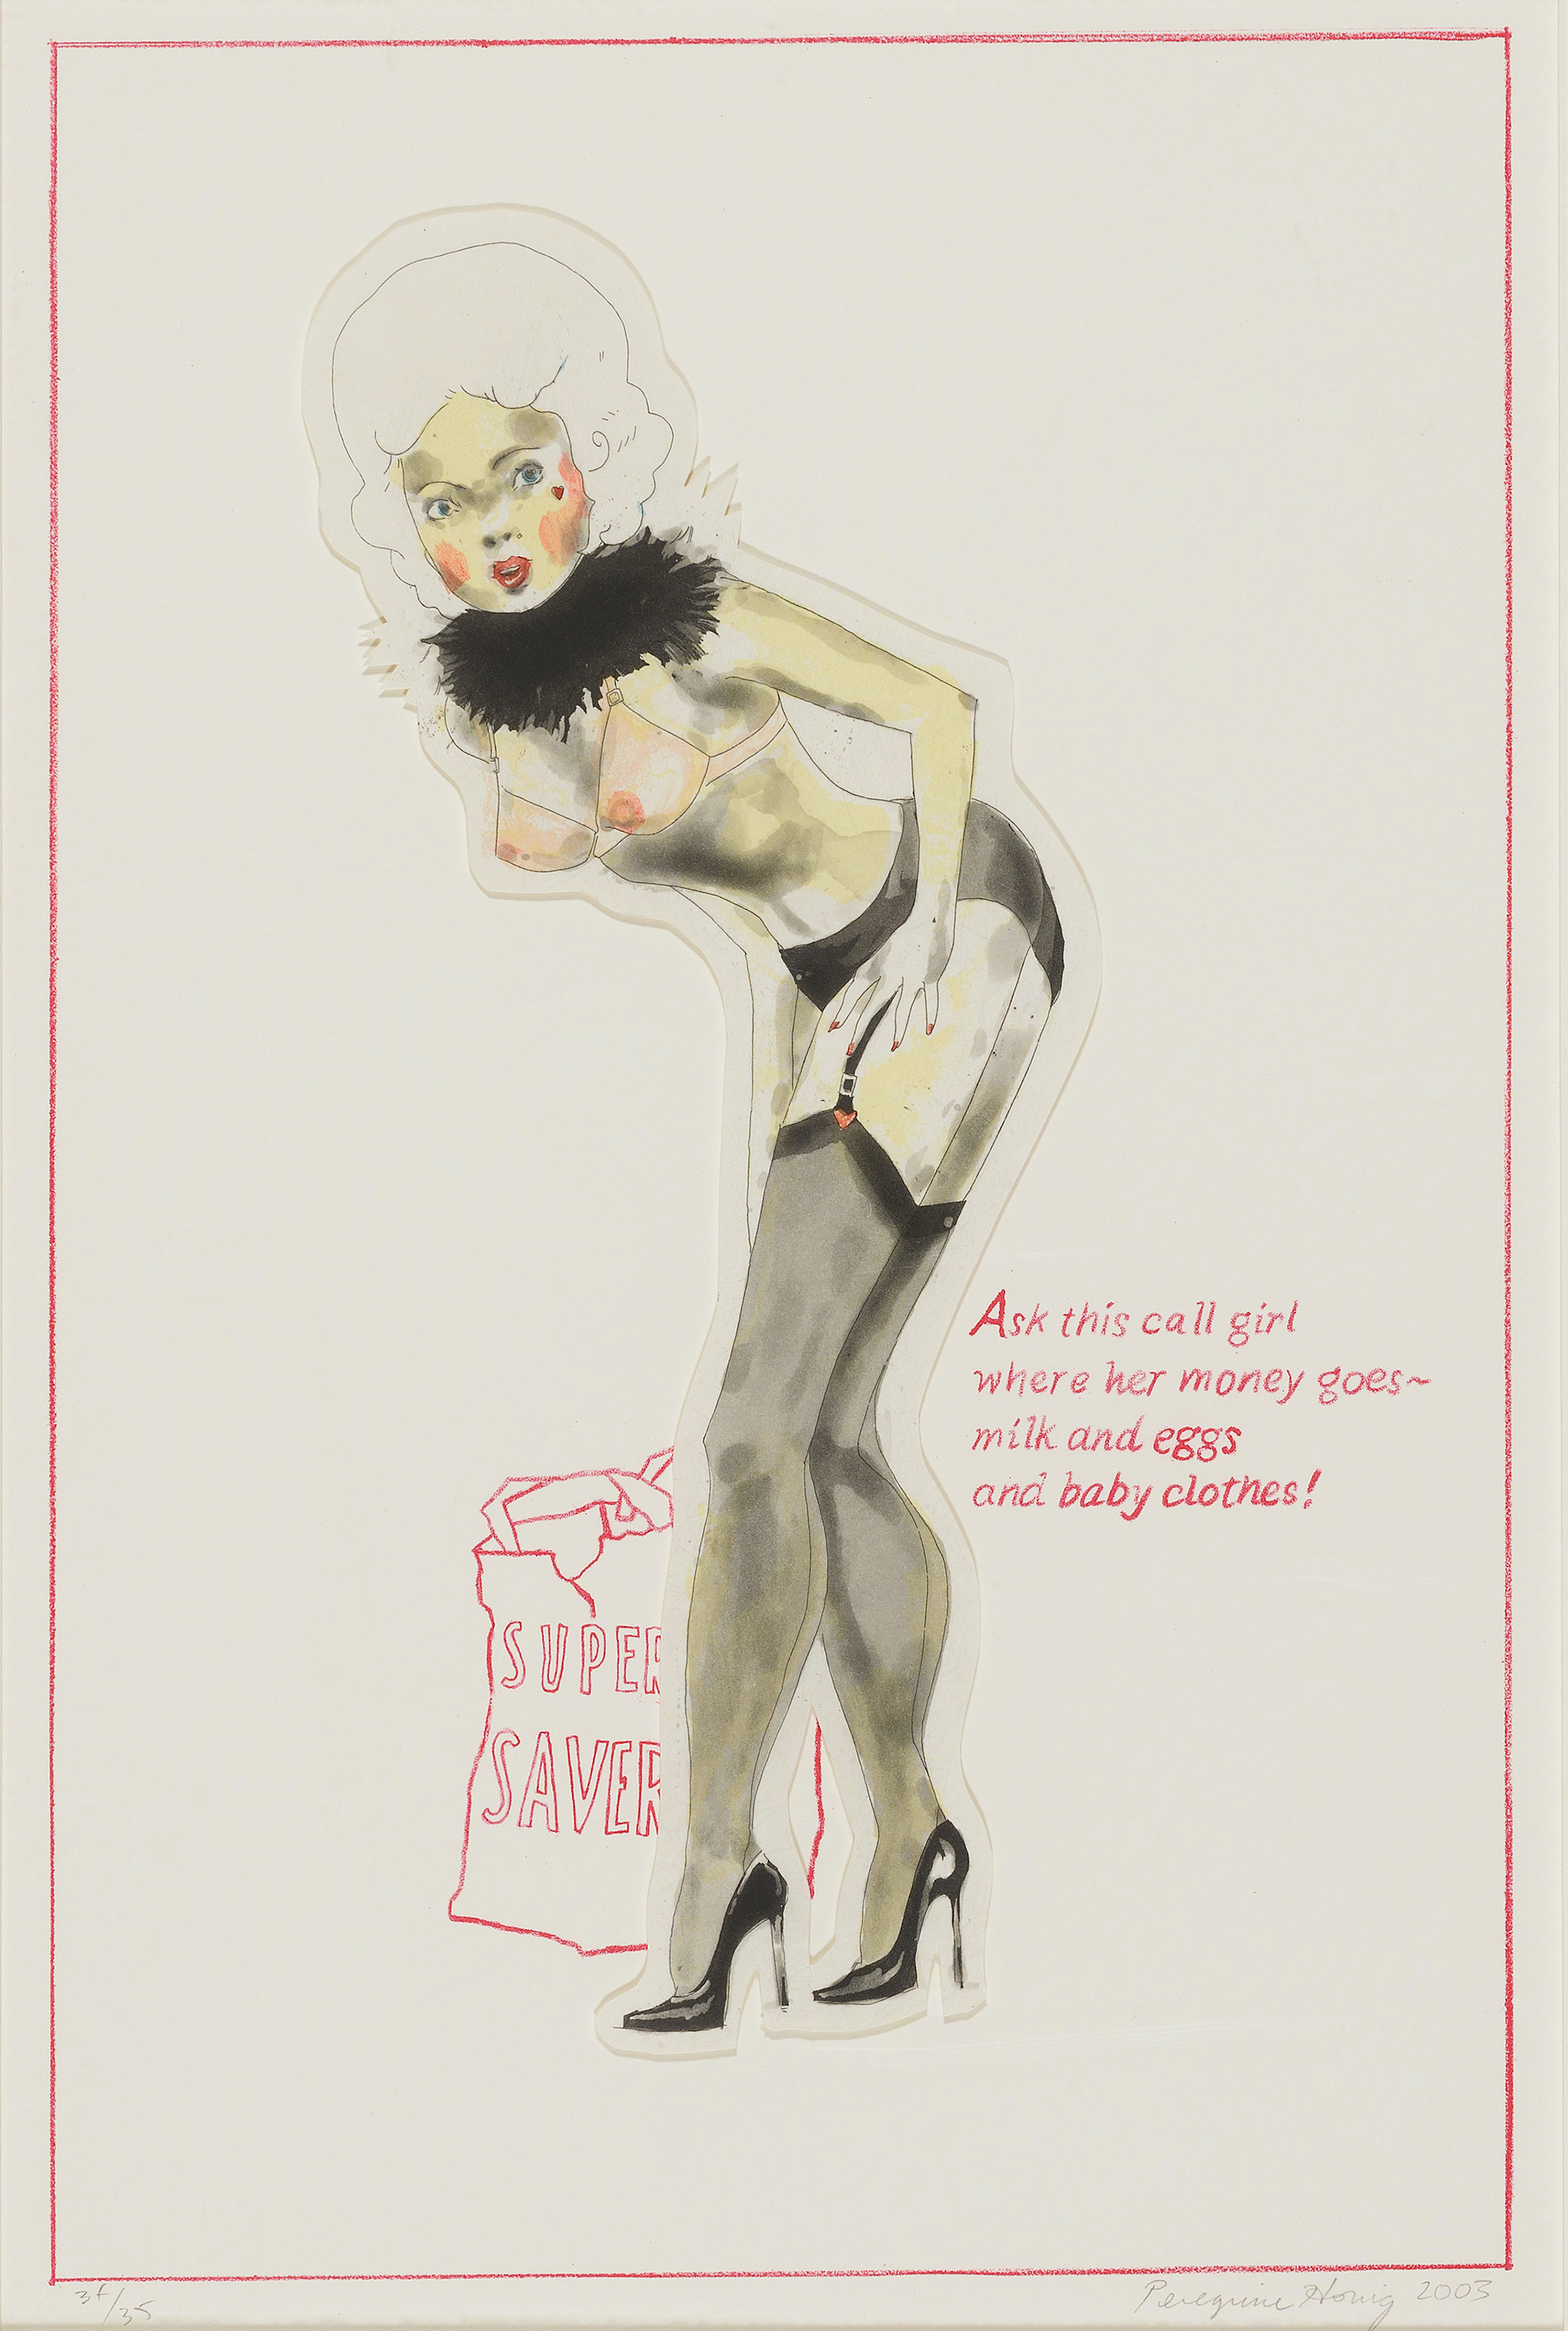 Ask this call girl
where her money goes~
milk and eggs
and baby clothes!
SUPER
SAVER
Peregrine Honig 2003